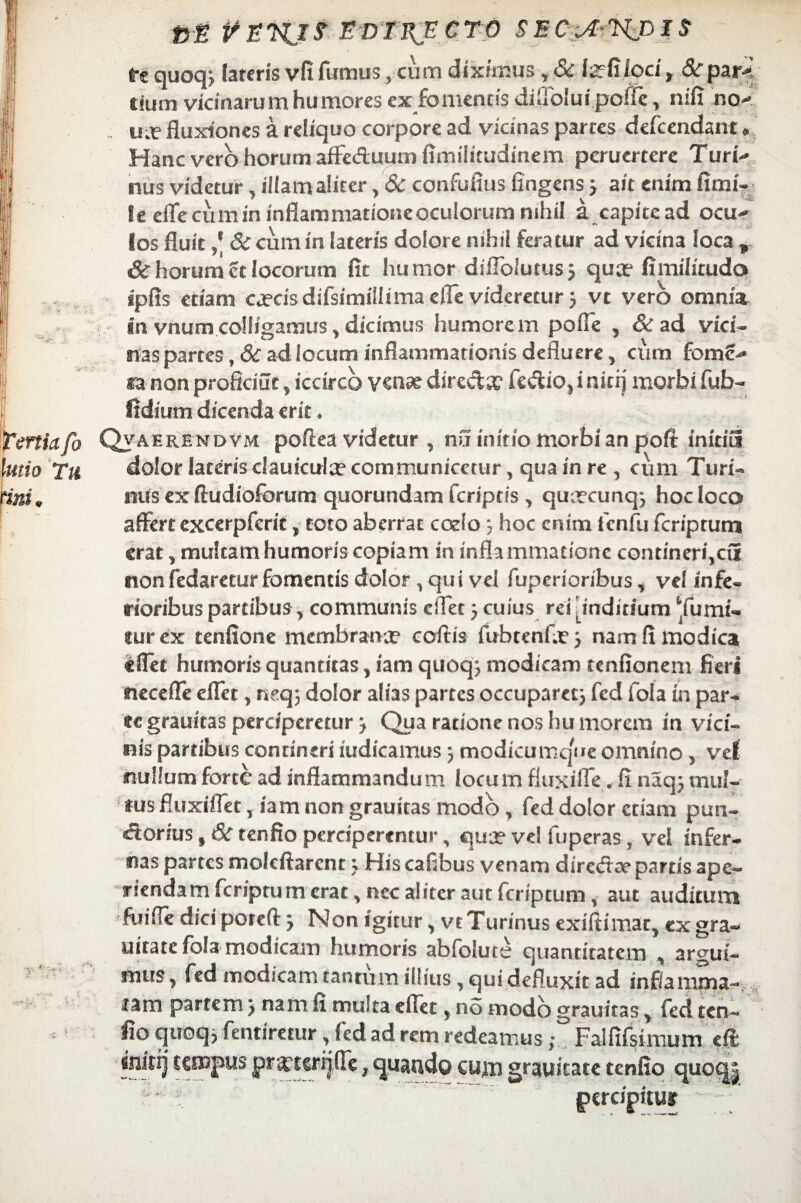 DE VENIS E DIRECTO SECANDIS
re quoqȝ lateris vsi sumus, cùm diximus, & læsi loci, & par-
tium vicinarum humores ex fomentis dissolui posse, nisi no-
uæ fluxiones à reliquo corpore ad vicinas partes descendant.
Hanc verò horum affectuum similitudinem peruertere Turi-
nus videtur, illam aliter, & confusius fingens; ait enim simi-
le esse cùm in inflammatione oculorum nihil à capite ad ocu-
los fluit, & cùm in lateris dolore nihil feratur ad vicina loca,
& horum et locorum sit humor dissolutus; quæ similitudo
ipsis etiam cæcis difsimillima esse videretur; vt verò omnia
in vnum colligamus, dicimus humorem posse, & ad vici-
nas partes, & ad locum inflammationis defluere, cùm fomē-
ta non proficiūt, iccirco venæ directæ sectio, initij morbi sub-
sidium dicenda erit.
Tertia so
lutio Tu
rini.
QVAERENDVM postea videtur, nū initio morbi an post initiū
dolor lateris clauiculæ communicetur, qua in re, cùm Turi-
nus ex studiosorum quorundam scriptis, quæcunqȝ hoc loco
affert excerpserit, toto aberrat cœlo; hoc enim sensu scriptum
erat, multam humoris copiam in inflammatione contineri, cū
non sedaretur fomentis dolor, qui vel superioribus, vel infe-
rioribus partibus, communis esset; cuius rei inditium sumi-
tur ex tensione membranæ costis subtensæ; nam si modica
esset humoris quantitas, iam quoqȝ modicam tensionem fieri
necesse esset, neqȝ dolor alias partes occuparet; sed sola in par-
te grauitas perciperetur; Qua ratione nos humorem in vici-
nis partibus contineri iudicamus; modicumque omnino, vel
nullum fortè ad inflammandum locum fluxisse. si nāqȝ mul-
tus fluxisset, iam non grauitas modò, sed dolor etiam pun-
ctorius, & tensio perciperentur, quæ vel superas, vel infer-
nas partes molestarent; His casibus venam directæ partis ape-
riendam scriptum erat, nec aliter aut scriptum, aut auditum
fuisse dici potest; Non igitur, vt Turinus existimat, ex gra-
uitate sola modicam humoris absolutè quantitatem, argui-
mus, sed modicam tantùm illius, qui defluxit ad inflamma-
tam partem; nam si multa esset, nō modò grauitas, sed ten-
sio quoqȝ sentiretur, sed ad rem redeamus; Falsifsimum est
initij tempus præterijsse, quando cum grauitate tensio quoqȝ
percipitur